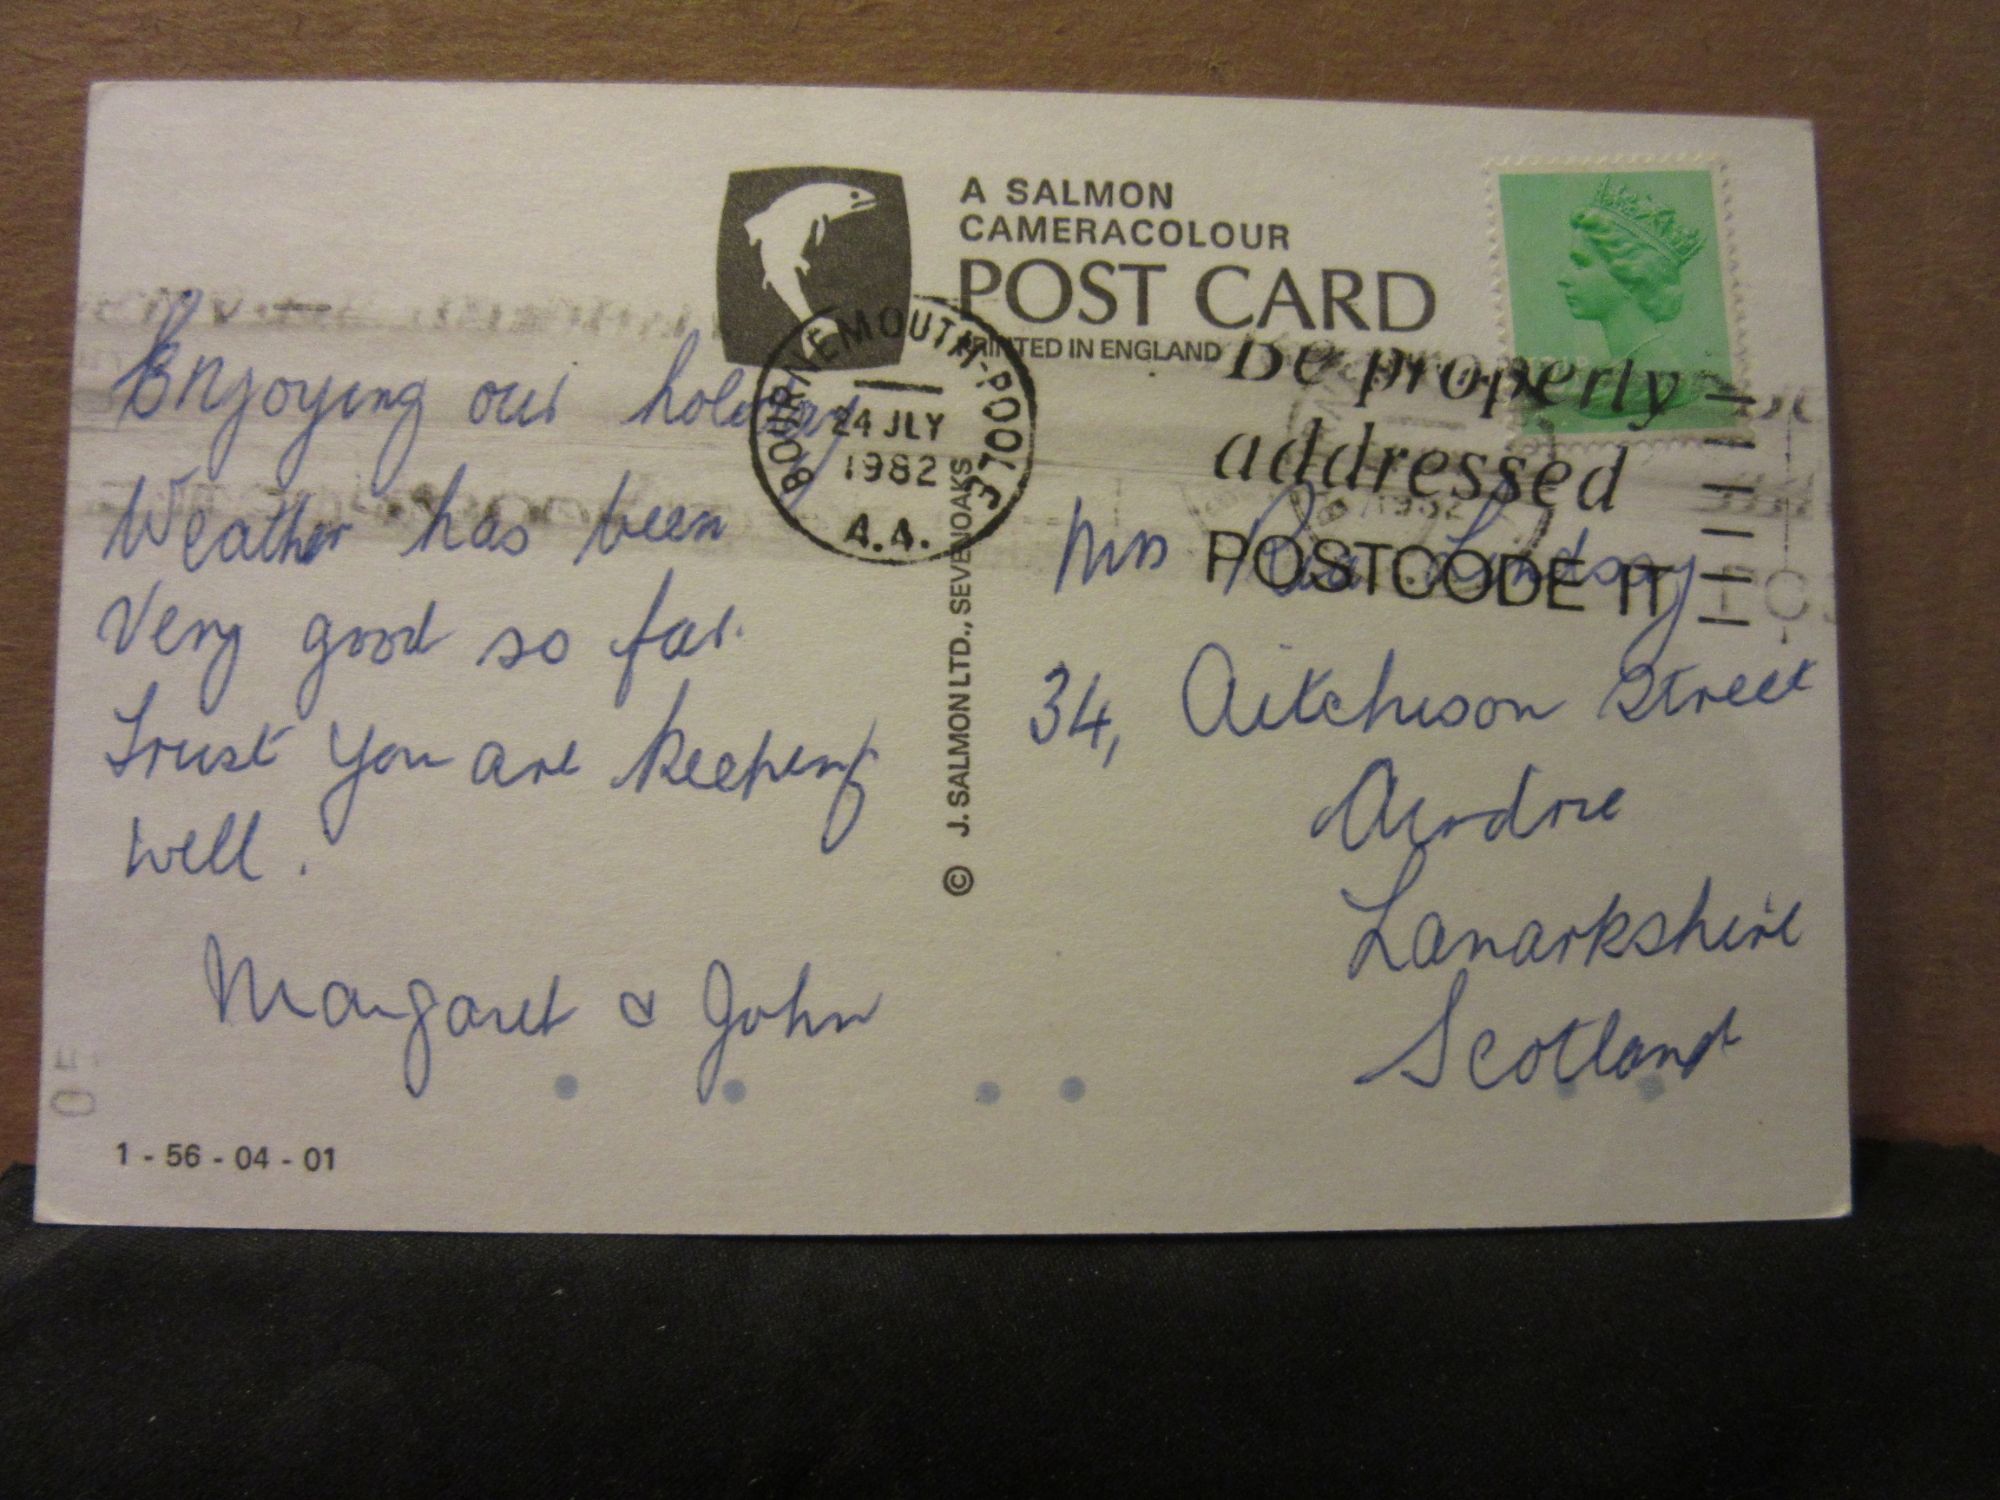 A SALMON
CAMERACOLOUR
POST CARD
PRINTED IN ENGLAND
BOURNEMOUTH-POOLE
24 JLY
1982
A.A.
Be properly
addressed
POSTCODE IT
Enjoying our holiday
Weather has been
Very good so far.
Trust you are keeping
well.
Margaret & John
1 - 56 - 04 - 01
© J. SALMON LTD., SEVENOAKS
Mrs Lindsay
34, Aitchison Street
Airdrie
Lanarkshire
Scotland
05